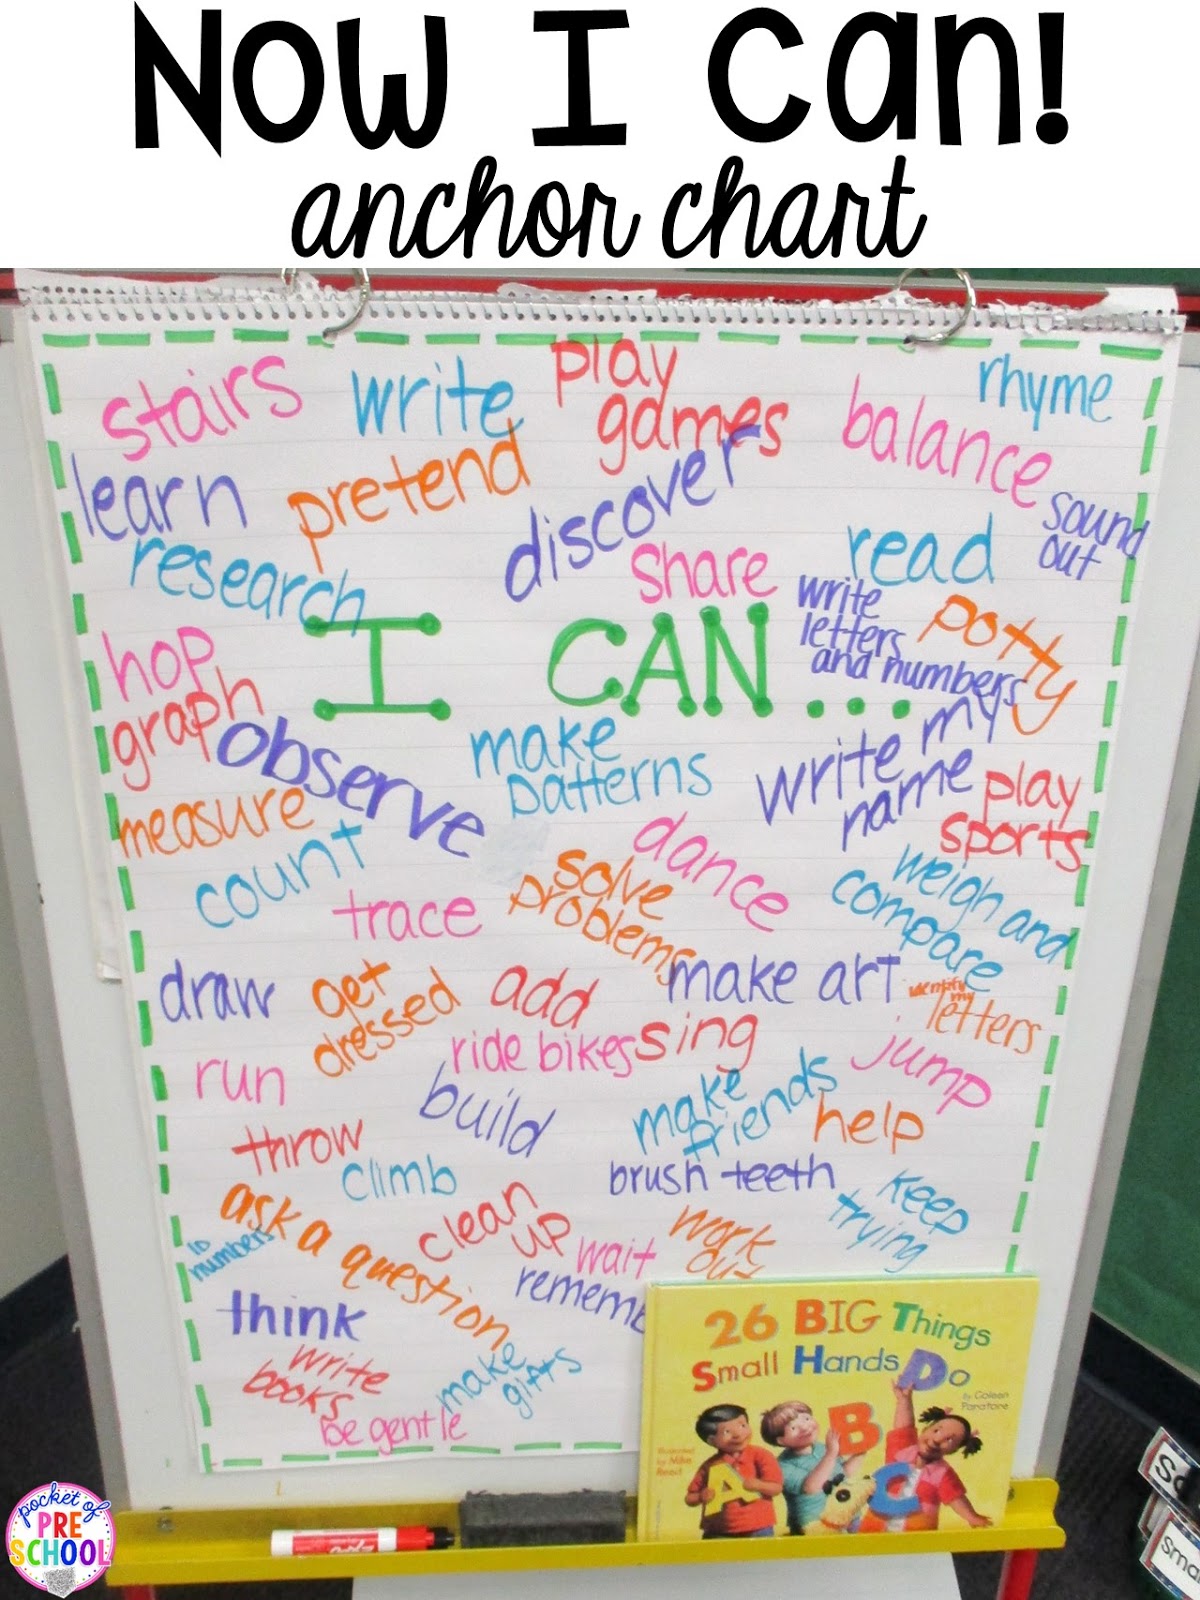 Now I Can!
anchor chart
stairs
write
play
games
balance
rhyme
learn
pretend
discover
sound
out
research
share
read
write
letters
and numbers
potty
hop
I CAN...
graph
observe
make
patterns
write my
name
play
sports
measure
count
trace
solve
problems
dance
weigh and
compare
draw
get
dressed
add
make art
my
letters
run
ride bikes
sing
jump
build
make
friends
help
throw
climb
brush teeth
keep
trying
ask a question
clean
up
work
out
ID
numbers
wait
rememb
think
write
books
make
gifts
be gentle
26 BIG Things
Small Hands Do
by Coleen
Paratore
Illustrated
by Mike
Reed
A
B
C
pocket of
PRE
SCHOOL
Expo
sma